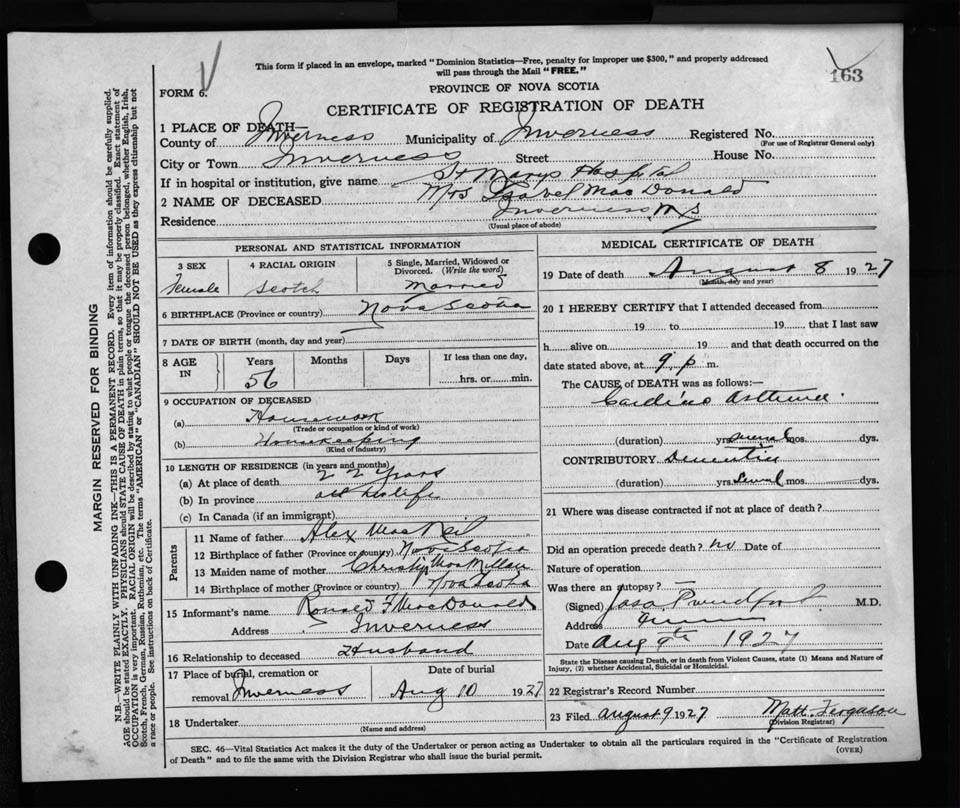 This form if placed in an envelope, marked "Dominion Statistics—Free, penalty for improper use $300," and properly addressed
will pass through the Mail "FREE."
163
FORM 6.
PROVINCE OF NOVA SCOTIA
CERTIFICATE OF REGISTRATION OF DEATH
1 PLACE OF DEATH—
County of Inverness Municipality of Inverness Registered No.
(For use of Registrar General only)
City or Town Inverness Street House No.
If in hospital or institution, give name St Marys Hospital
2 NAME OF DECEASED Mrs Isabel MacDonald
Residence Inverness N S
(Usual place of abode)
PERSONAL AND STATISTICAL INFORMATION
3 SEX
Female
4 RACIAL ORIGIN
Scotch
5 Single, Married, Widowed or
Divorced. (Write the word)
Married
6 BIRTHPLACE (Province or country) Nova Scotia
7 DATE OF BIRTH (month, day and year)
8 AGE
IN
Years
56
Months
Days
If less than one day,
hrs. or min.
9 OCCUPATION OF DECEASED
(a) Housework
(Trade or occupation or kind of work)
(b) Housekeeping
(Kind of industry)
10 LENGTH OF RESIDENCE (in years and months)
(a) At place of death 22 Years
(b) In province all his life
(c) In Canada (if an immigrant)
Parents
11 Name of father Alex MacNeil
12 Birthplace of father (Province or country) Nova Scotia
13 Maiden name of mother Christy MacMillan
14 Birthplace of mother (Province or country) Nova Scotia
15 Informant's name Ronald F MacDonald
Address Inverness
16 Relationship to deceased Husband
17 Place of burial, cremation or
removal Inverness
Date of burial
Aug 10 1927
18 Undertaker
(Name and address)
MEDICAL CERTIFICATE OF DEATH
19 Date of death August 8 1927
(Month, day and year)
20 I HEREBY CERTIFY that I attended deceased from
19 to 19 that I last saw
h alive on 19 and that death occurred on the
date stated above, at 9 p m.
The CAUSE of DEATH was as follows:—
Cardiac Asthenia
(duration) yrs several mos. dys.
CONTRIBUTORY Dementia
(duration) yrs several mos dys.
21 Where was disease contracted if not at place of death?
Did an operation precede death? no Date of
Nature of operation
Was there an autopsy? —
(Signed) M.D.
Address
Date Aug 9th 1927
State the Disease causing Death, or in death from Violent Causes, state (1) Means and Nature of
Injury, (2) whether Accidental, Suicidal or Homicidal.
22 Registrar's Record Number
23 Filed August 9 1927 Matt. Ferguson
(Division Registrar)
SEC. 46—Vital Statistics Act makes it the duty of the Undertaker or person acting as Undertaker to obtain all the particulars required in the "Certificate of Registration
of Death" and to file the same with the Division Registrar who shall issue the burial permit.
(OVER)
MARGIN RESERVED FOR BINDING
N.B.—WRITE PLAINLY WITH UNFADING INK—THIS IS A PERMANENT RECORD. Every item of information should be carefully supplied.
AGE should be stated EXACTLY. PHYSICIANS should STATE CAUSE OF DEATH in plain terms, so that it may be properly classified. Exact statement of
OCCUPATION is very important. RACIAL ORIGIN will be described by stating to what people or tongue the deceased person belonged, whether English, Irish,
Scotch, French, German, Russian, Ruthenian, etc. The terms "AMERICAN" or "CANADIAN" SHOULD NOT BE USED as they express citizenship but not
a race or people. See instructions on back of Certificate.